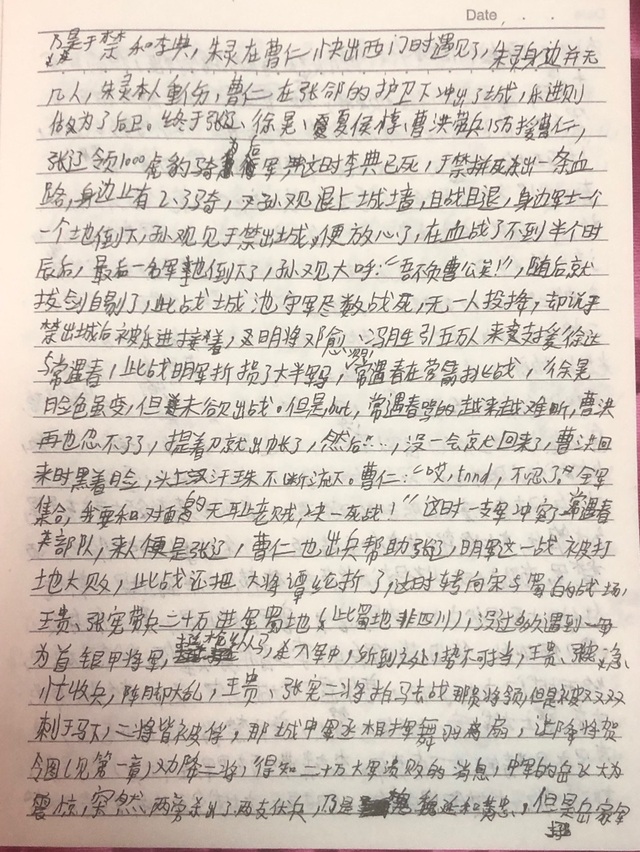 Date
乃是于禁和李典,朱灵在曹仁快出西门时遇见了,朱灵身边并无
几人,朱灵本人重伤,曹仁在张郃的护卫下冲出了城,乐进则
做为了后卫。终于张辽、徐晃、夏侯惇、曹洪带兵15万接曹仁,
张辽领1000虎豹骑为军这时李典已死,于禁拼死杀出一条血
路,身边止有2、3骑,孙观退上城墙,且战且退,身边军士一个
一个地倒下,孙观见于禁出城,便放心了,在血战了不到半个时
辰后,最后一名军士也倒下了,孙观大呼:“吾不负曹公矣!”,随后就
拔剑自刎了,此战土城池守军尽数战死,无一人投降,却说于
禁出城后被乐进接着,明将邓愈、冯胜引五万人来支援徐达
与常遇春!此战明军折损了大半,常遇春在营前挑战,徐晃
脸色虽变,但未欲出战。但是but,常遇春骂的越来越难听,曹洪
再也忍不了了,提着刀就出帐了,然后…,没一会就回来了,曹洪回
来时黑着脸,头上汗珠不断流下。曹仁:“哎,tnnd,不忍了。全军
集合,我要和对面的无耻老贼,决一死战!”这时一支军冲突了常遇春
部队,来人便是张辽,曹仁也出兵帮助张辽,明军这一战被打
地大败,此战还把大将谭纶折了,这时转向宋与蜀的战场,
王贵、张宪带兵二十万进军蜀地(此蜀地非四川),没过多久遇到一军
为首银甲将军,杀入军中,所到之处势不可当,王贵、张宪急
忙收兵,阵脚大乱,王贵、张宪二将拍马去战那员将领,但是被双双双
刺于马下,二将皆被俘,那城中军丞相挥舞羽扇,让降将贺
今图(见第一章)劝降二将,得知二十万大军溃败的消息,中军的岳飞大为
震惊,突然两旁杀出了两支伏兵,乃是魏延和黄忠。但是岳家军